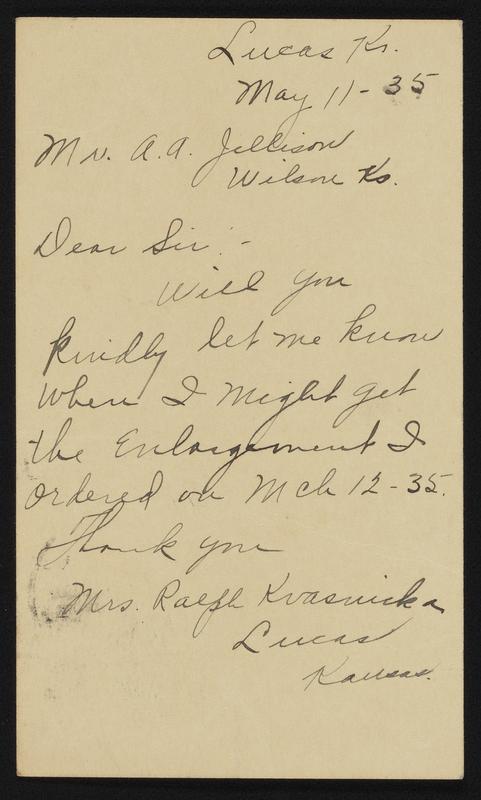 Lucas Ks.
May 11-35
Mr. A.A. Jellison
Wilson Ks.
Dear Sir:-
Will you
kindly let me know
when I might get
the Enlargement I
ordered on Mch 12-35.
Thank you
Mrs. Ralph Kvasnicka
Lucas
Kansas.